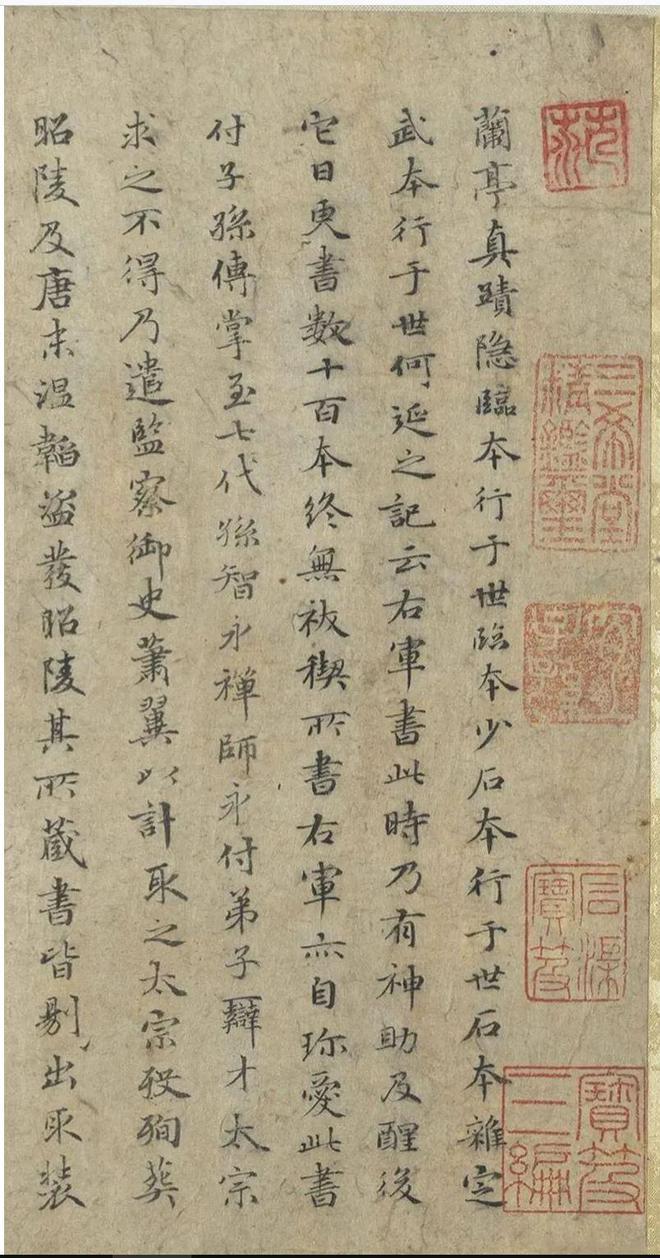 三希堂精鑑璽
石渠寶笈
寶笈三編
蘭亭真蹟隐臨本行于世臨本少石本行于世石本雜定
武本行于世何延之記云右軍書此時乃有神助及醒後
它日更書数十百本終無祓禊所書右軍亦自珎愛此書
付子孫傳掌至七代孫智永禪師永付弟子辯才太宗
求之不得乃遣監察御史蕭翼以計取之太宗歿殉葬
昭陵及唐末温韜盗發昭陵其所藏書皆剔出取裝